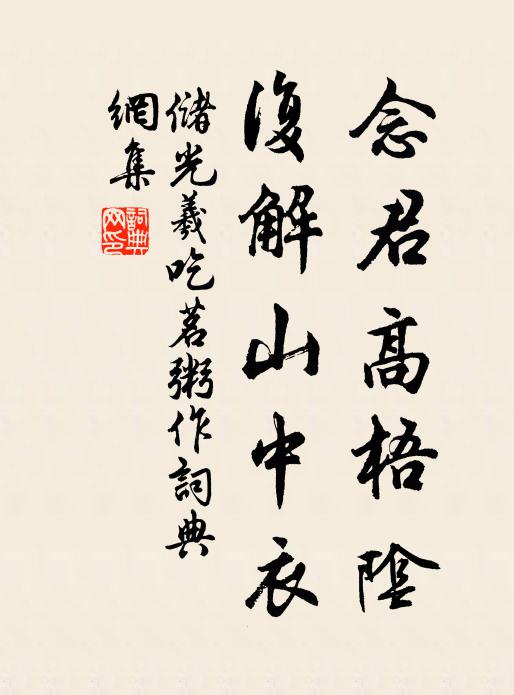 念君高梧陰
復解山中衣
儲光羲吃茗粥作詞典
網集
詞典
网印